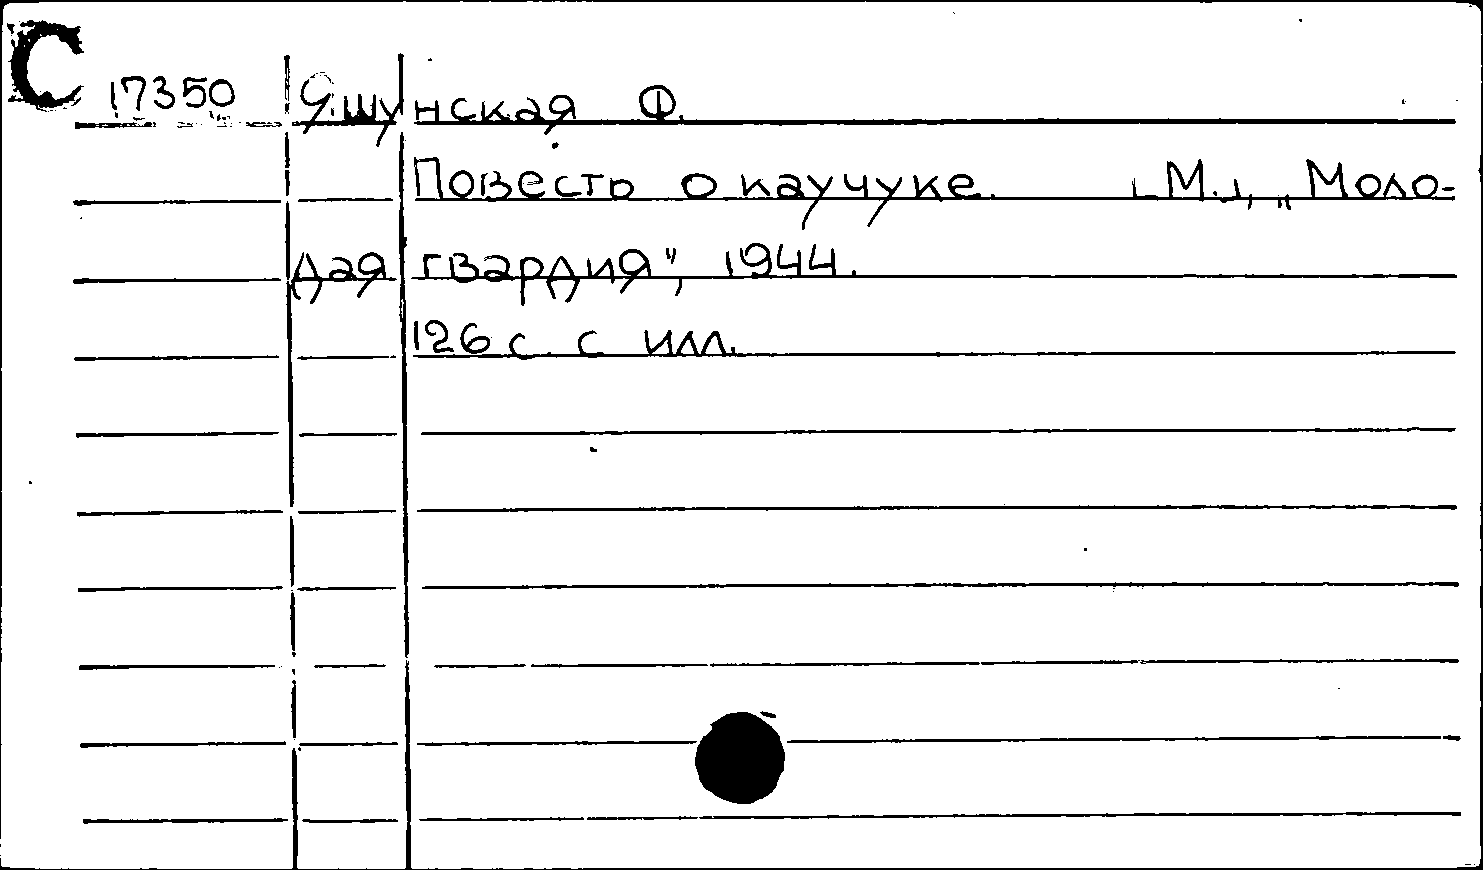 С 17350 Яшунская Ф.
Повесть о каучуке. [М.], „Моло-
дая гвардия", 1944.
126 с. с илл.